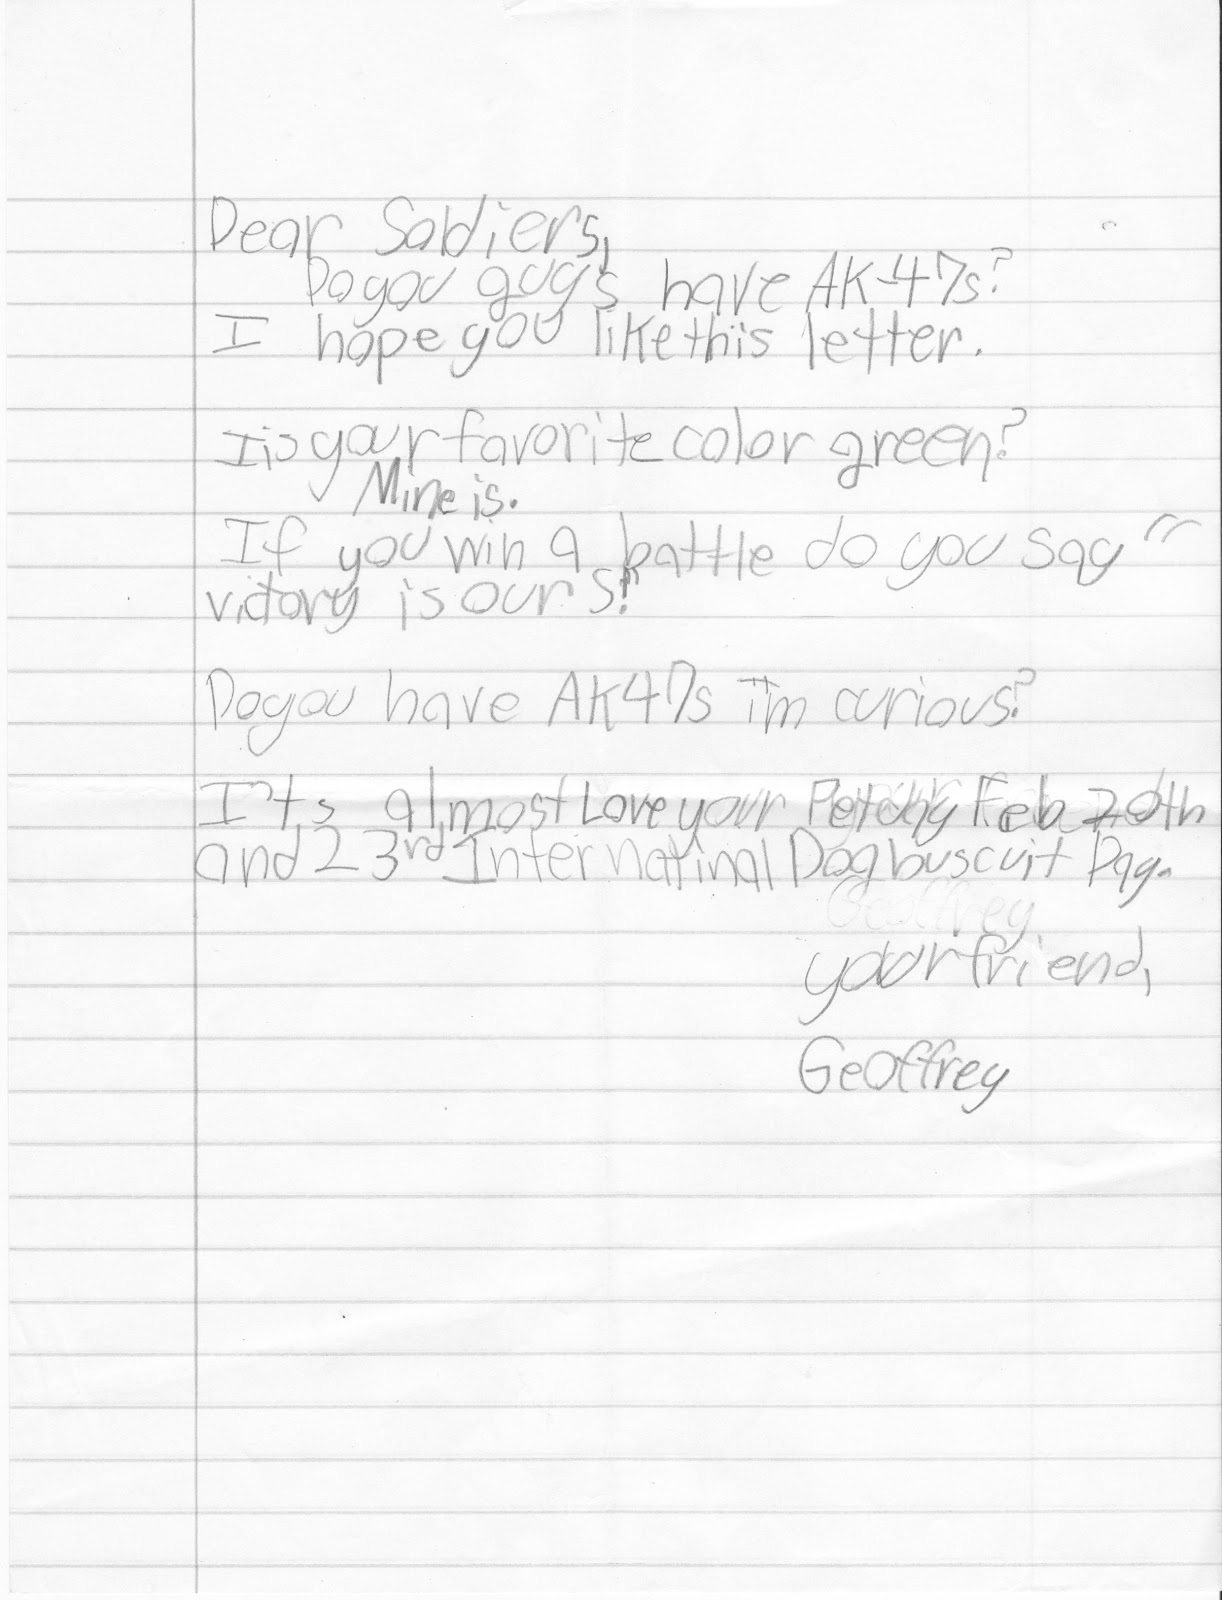 Dear Soldiers,
Do you guys have AK-47s?
I hope you like this letter.
Is your favorite color green?
Mine is.
If you win a battle do you say "
victory is ours!"
Do you have AK47s I'm curious?
It's almost Love your Pet day Feb 20th
and 23rd Internatinal Dog buscuit Day.
Geoffrey
your friend,
Geoffrey